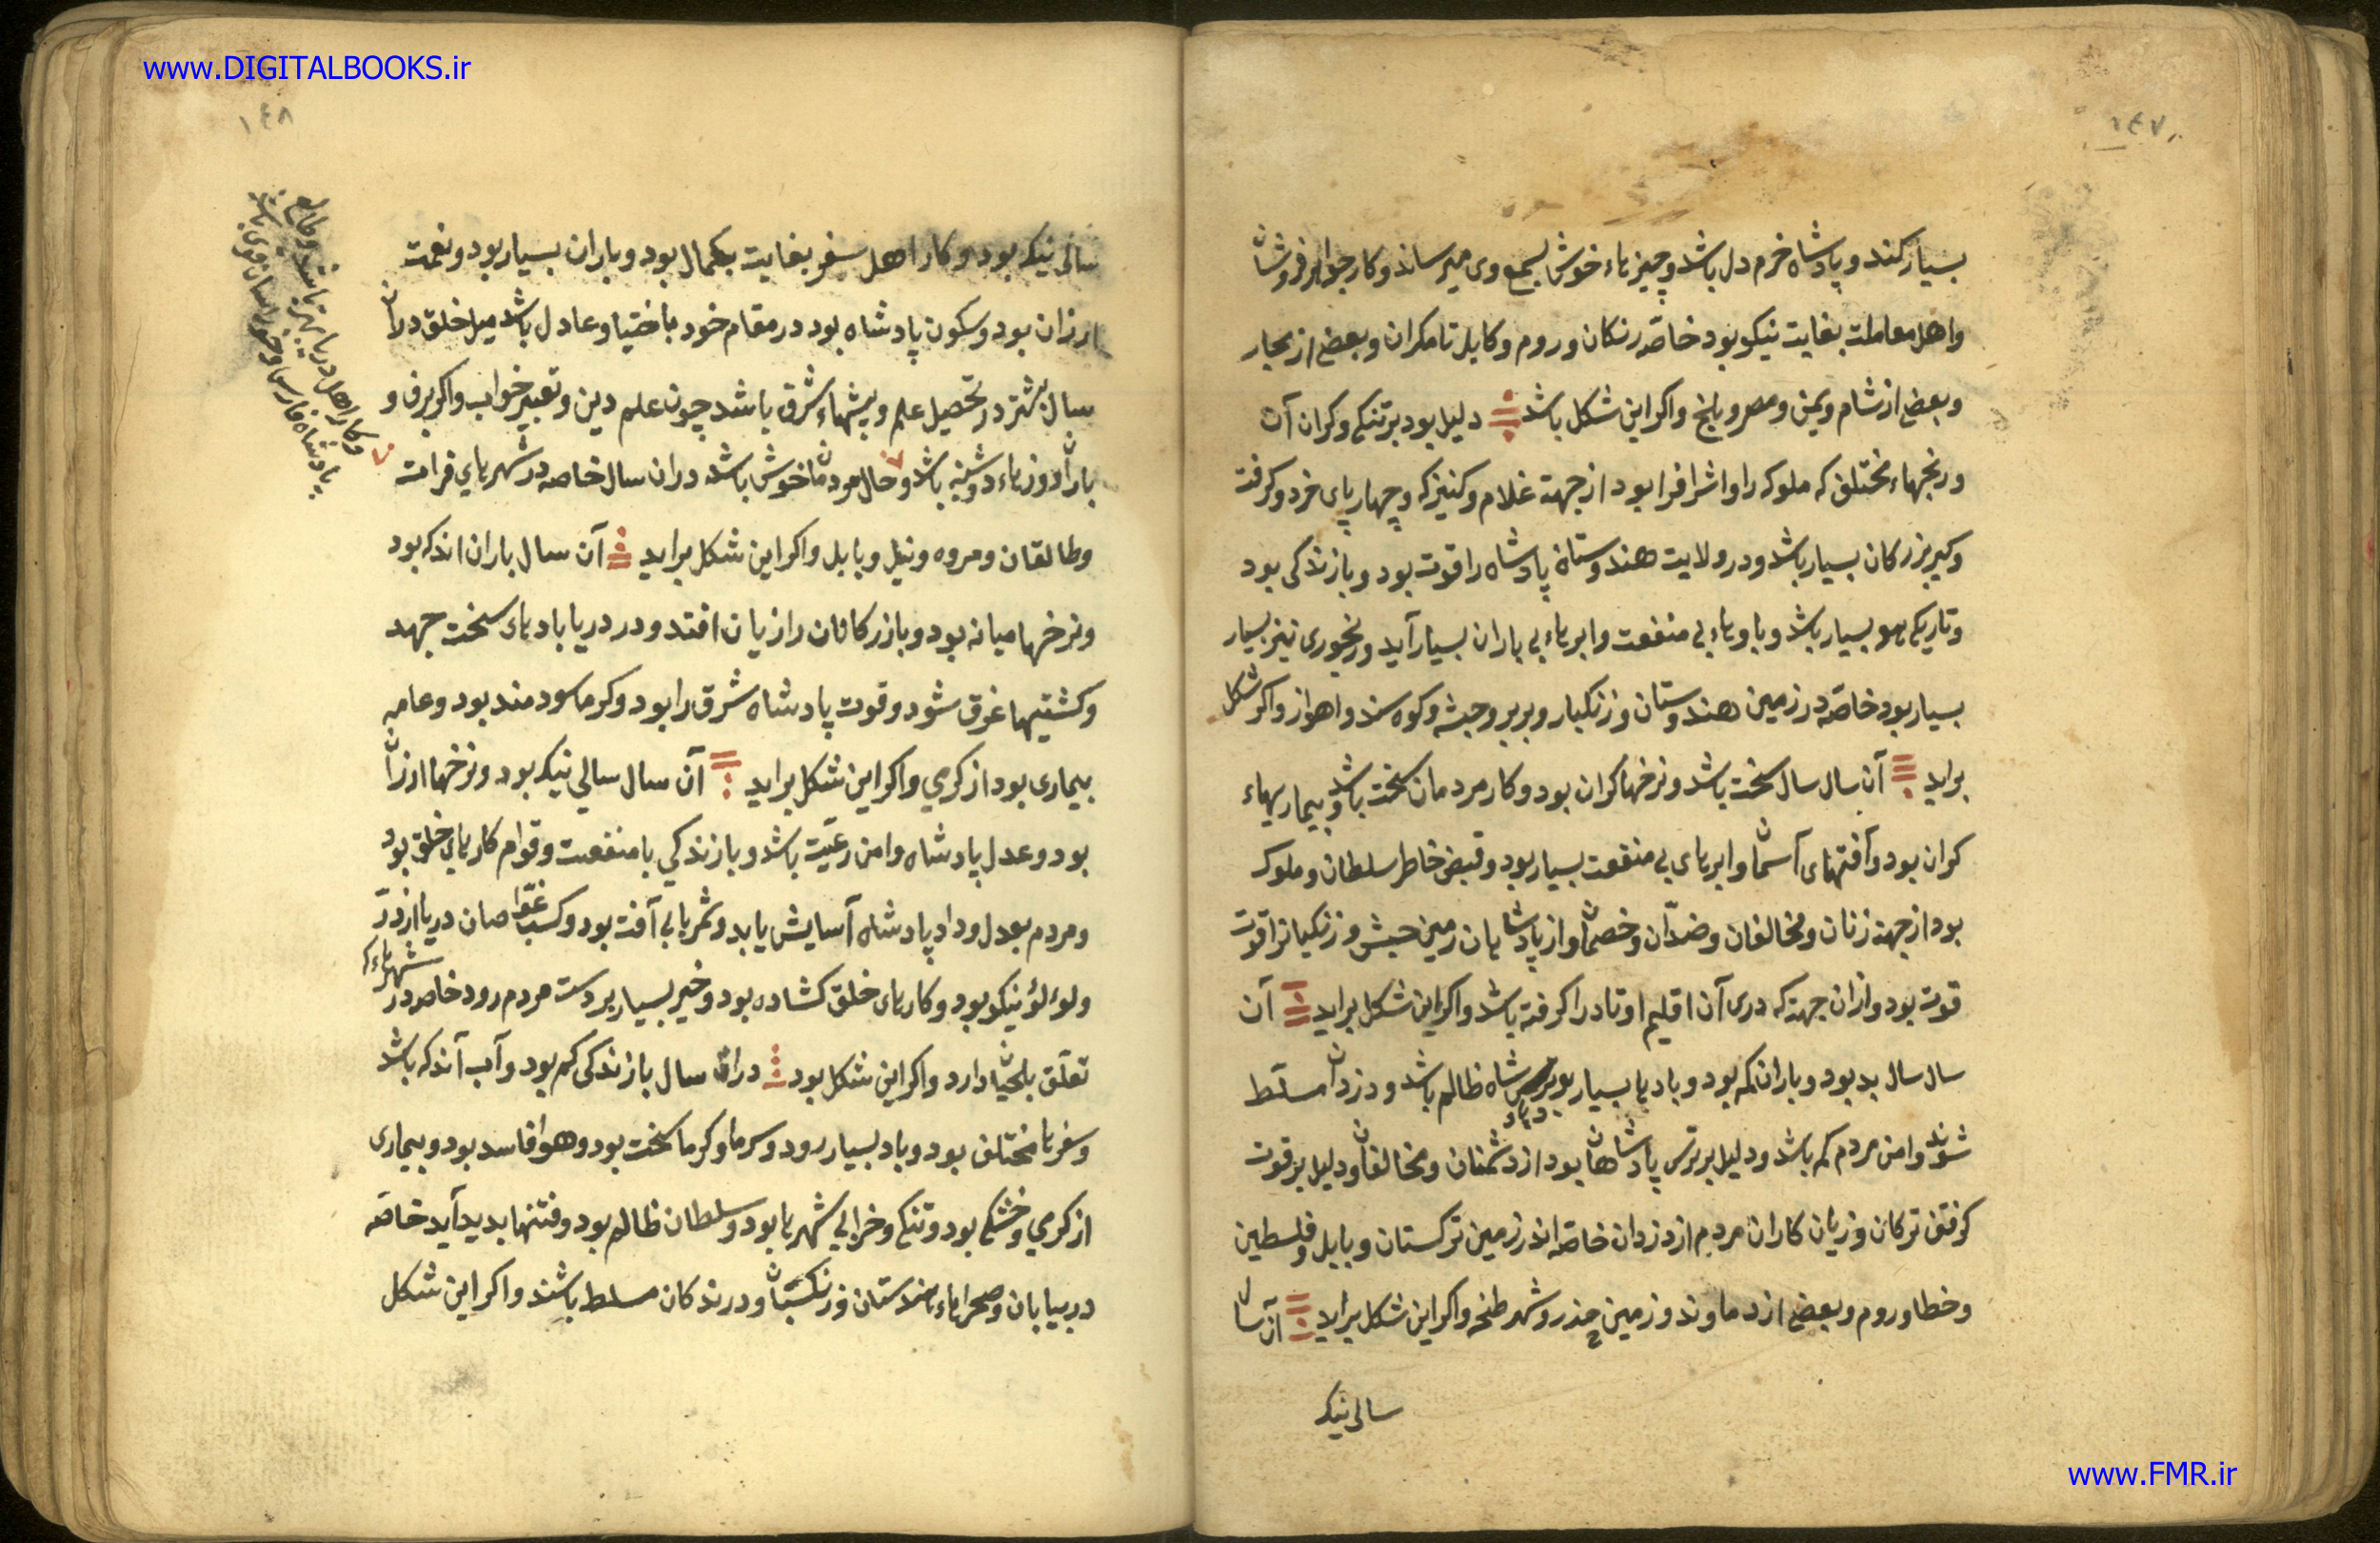 www.DIGITALBOOKS.ir
۱۴۷
بسیار کند و پادشاه خرم دل باشد و چیزهاء خوش بسمع وی میرساند و کار جواهر فروشان
و اهل معاملت بغایت نیکو بود خاصّه زنکان و روم و کابل تا مکران و بعضی از بحار
و بعضی از شام و یمن و مصر و بلخ و اکر این شکل باشد دلیل بود بر تنکی و کران آن
و رنجهاء مختلف که ملوکه را و اشراف را بود از جهت غلام و کنیزک و چهارپای خرد و کرفت
و کیر بزرکان بسیار باشد و در ولایت هندوستان پادشاه را قوت بود و بازندکی بود
و تاریکی هو بسیار باشد و باوهاء بی منفعت و ابرهاء بی باران بسیار آید و رنجوری نیز بسیار
بسیار بود خاصّه در زمین هندوستان و زنکبار و بربر و حبشه و کوه سند و اهواز و اکر شکل
براید آن سال سال سخت باشد و نرخها کران بود و کار مردمان سخت باشد و بیماریهاء
کران بود و آفتهای آسمان و ابرهای بی منفعت بسیار بود و قبض خاطر سلطان و ملوک
بود از جهت زنان و مخالفان و ضدّان و خصمان و از پادشاهان زمین حبش و زنکیانرا قوت
قوت بود و ازان جهت که دری آن اقلیم اوتاد را کرفته باشد و اکر این شکل براید آن
سال سال بد بود و باران کمه بود و بادها بسیار بود شاه ظالم باشد و دزدان مسلّط
شوند و امن مردم کم باشد و دلیل بر ترس پادشاهان بود از دشمنان و مخالفان و دلیل بر قوت
کرفتن ترکان و زیان کاران مردم از دزدان خاصّه اندر زمین ترکستان و بابل و فلسطین
و خطا و روم و بعضی از دماوند و زمین خزر و شهر طنجه و اکر این شکل براید آن سال
سالی نیک
۱۴۸
سالی نیک بود و کار اهل سفر بغایت بکمال بود و باران بسیار بود و نعمت
ارزان بود و سکون پادشاه بود در مقام خود باختیار و عادل باشد میل خلق دران
سال بیشتر در تحصیل علم و پیشهاء شرق باشد چون علم دین و تعبیر خواب و اکر برف و
باران و وزهاء دوشنبه باشد و حال مردمان خوش باشد دران سال خاصه در شهرهای فرامت
و طالقان و مروه و نیل و بابل و اکر این شکل براید آن سال باران اندک بود
و نرخها میانه بود و بازرکانان را زیان افتد و در دریا بادهای سخت جهد
و کشتیها غرق شود و قوت پادشاه شرق را بود و کرما سودمند بود و عامه
بیماری بود از کرمی و اکر این شکل براید آن سال سالی نیک بود و نرخها ارزان
بود و عدل پادشاه و امن رعیّت باشد و بازندکی با منفعت و قوام کارهای خلق بود
و مردم بعدل و داد پادشاه آسایش یابد و ثمرها بی آفت بود و کسب غوّاصان دریا از درّ
و لوءلؤ نیکو بود و کارهای خلق کشاده بود و خیر بسیار بر دست مردم رود خاصه در شهرهاء که
تعلّق بلحیان دارد و اکر این شکل بود دران سال بازندکی کم بود و آب آندکه باشد
و سفرها مختلف بود و باد بسیار رود و سرما و کرما سخت بود و هوا فاسد بود و بیماری
از کرمی و خشکی بود و تنکی و خرابی شهرها بود و سلطان ظالم بود و فتنها بدید آید خاصّه
در بیابان و صحراهاء هندستان و زنکستان و درندکان مسلط باشند و اکر این شکل
www.FMR.ir